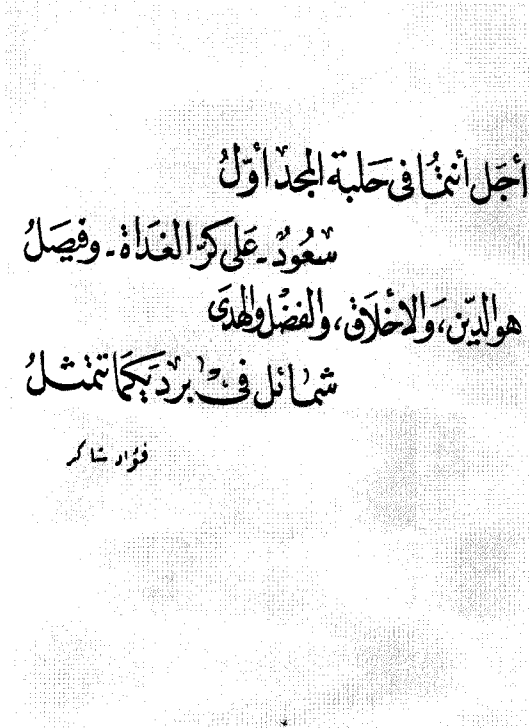 أجَل أنتمَا في حَلبة المجد أوّلُ
سعُودٌ ـ عَلى كرّ الغَدَاة ـ وفيصَلُ
هو الدّين، وَالاخْلَاق، والفضْل والهدَى
شمائل فى بردَيكمَا تتمثلُ
فؤاد شاكر